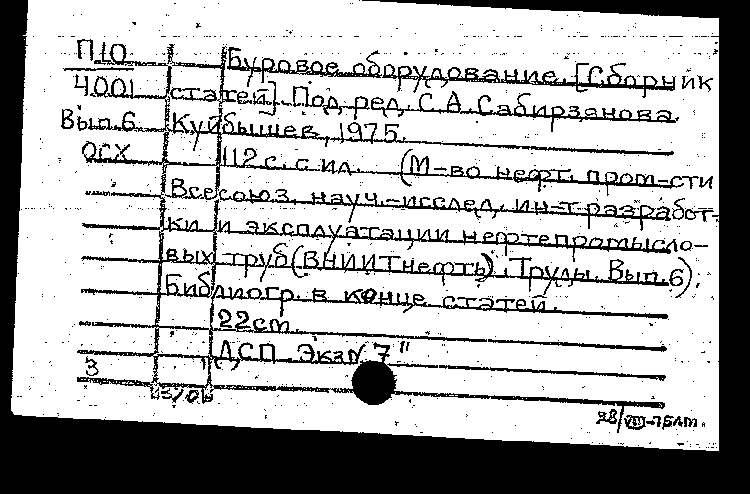 П10 Буровое оборудование. [Сборник
4001 статей]. Под ред. С.А. Сабирзянова.
Вып.6 Куйбышев, 1975.
ОСХ 112 с. с ил. (М-во нефт. пром-сти
Всесоюз. науч.-исслед. ин-т разработ-
ки и эксплуатации нефтепромысло-
вых труб (ВНИИТнефть). Труды. Вып.6).
Библиогр. в конце статей.
22 cm.
ДСП. Экз N 7"
3